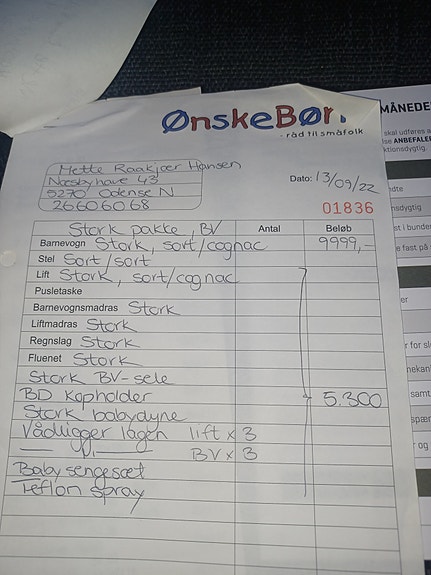 ØnskeBørn
- råd til småfolk
Mette Raakjær Hansen
Næsbyhave 43
5270 Odense N
26606068
Dato: 13/09/22
01836
Stork pakke, BV Antal Beløb
Barnevogn Stork, sort/cognac 9999,-
Stel Sort/sort
Lift Stork, sort/cognac
Pusletaske
Barnevognsmadras Stork
Liftmadras Stork
Regnslag Stork
Fluenet Stork
Stork BV-sele
BD Kopholder 5.300
Stork babydyne
Vådligger lagen lift x 3
— 11 — BV x 3
Baby sengesæt
Teflon spray
MÅNEDE
skal udføres
ANBEFALE
ktionsdygtig.
dte
nsdygtig
st i bunde
e fast på
er
r for
nekan
samt
spær
r og